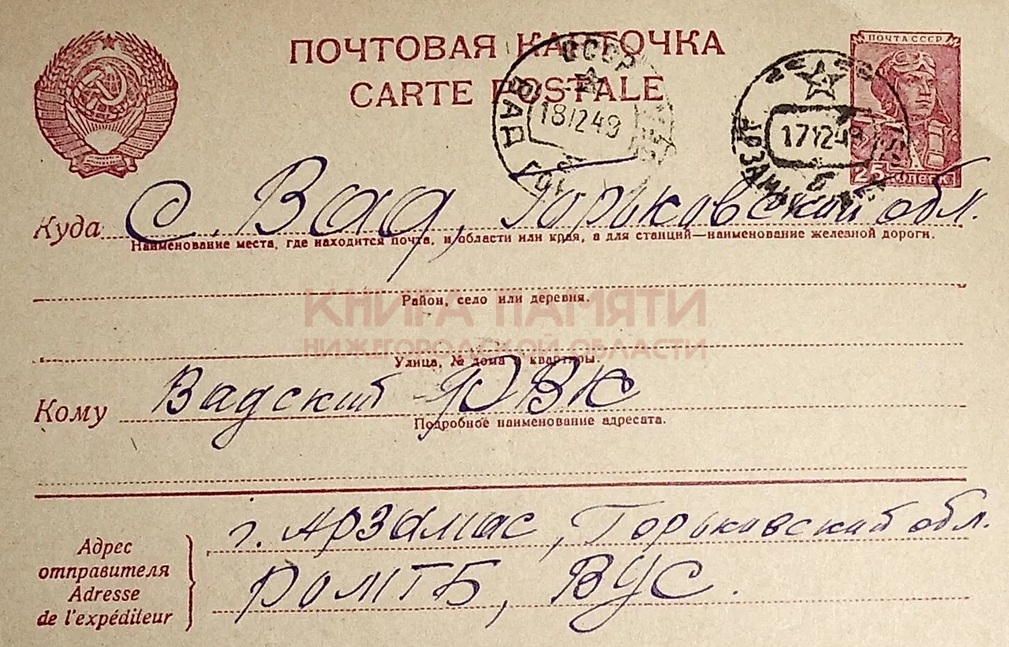 ПОЧТОВАЯ КАРТОЧКА
CARTE POSTALE
ПОЧТА СССР
25 КОПЕЕК
СССР
ВАД
18 12 49
17 12 49
АРЗАМАС
Куда с. Вад, Горьковской обл.
Наименование места, где находится почта, и области или края, а для станций—наименование железной дороги.
Район, село или деревня.
КНИГА ПАМЯТИ
НИЖЕГОРОДСКОЙ ОБЛАСТИ
Улица, № дома и квартиры.
Кому Вадский РВК
Подробное наименование адресата.
Адрес
отправителя
Adresse
de l'expéditeur
г. Арзамас, Горьковский обл.
РОМГБ, ВУС.